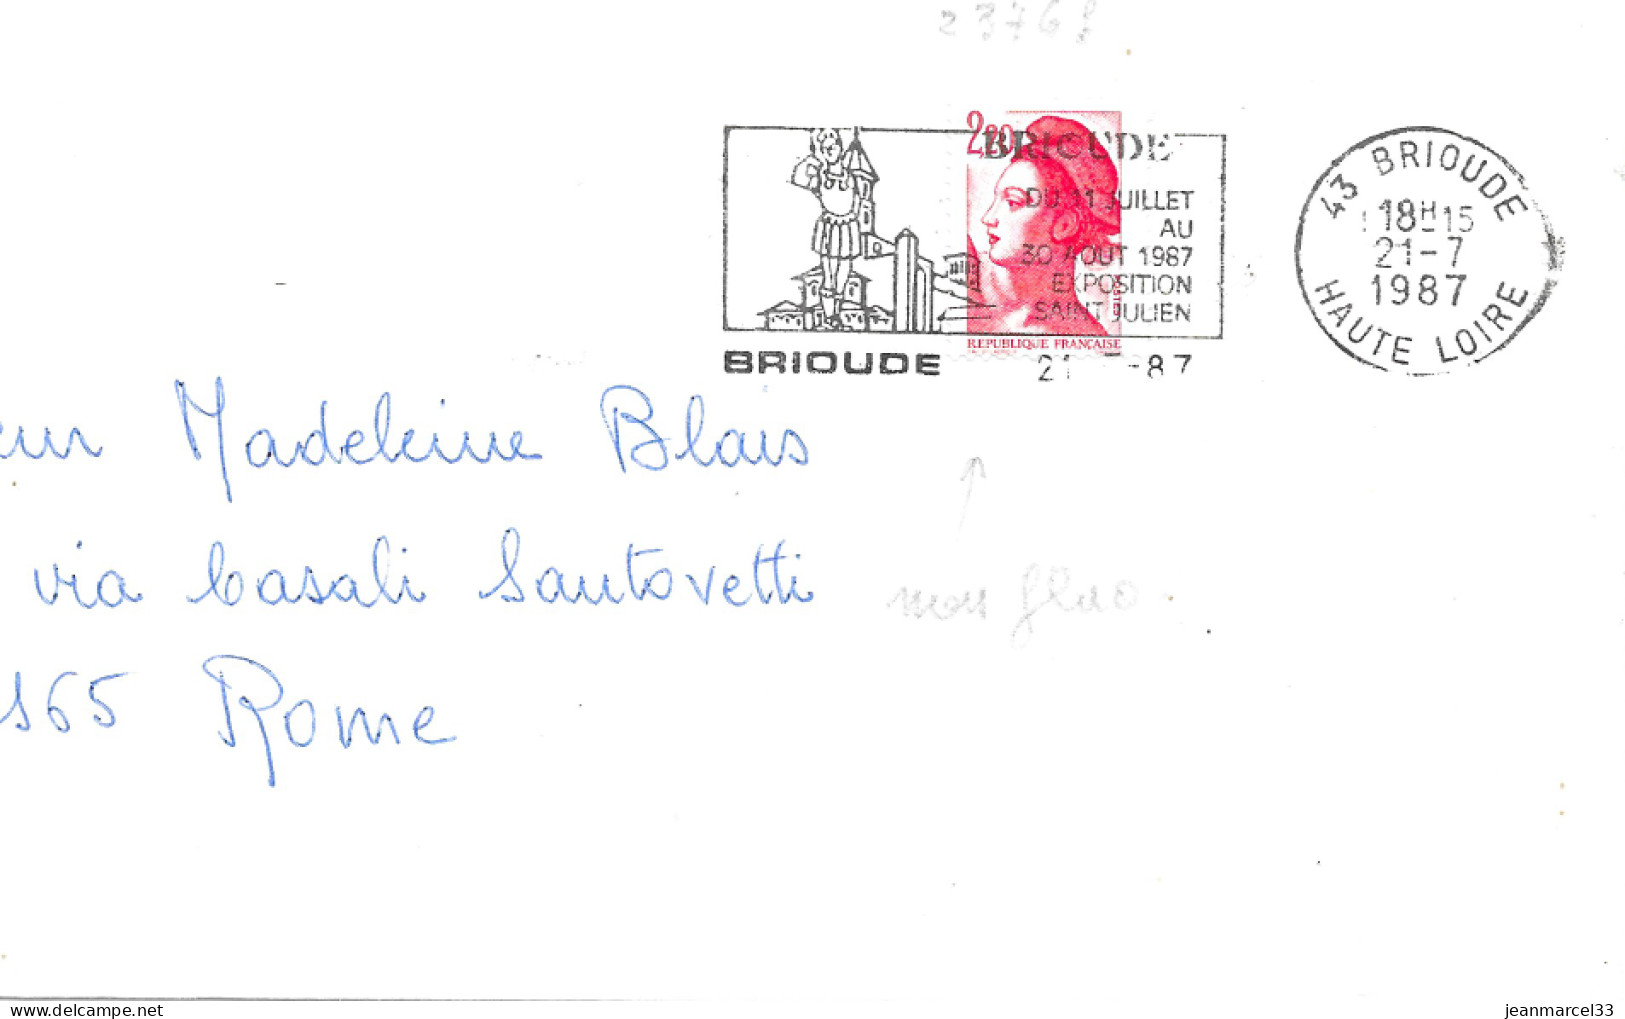 23768
2,20
BRIOUDE
DU 11 JUILLET
AU
30 AOUT 1987
EXPOSITION
SAINT JULIEN
REPUBLIQUE FRANÇAISE
BRIOUDE
21 -87
43 BRIOUDE
18H15
21-7
1987
HAUTE LOIRE
eur Madeleine Blais
via Casali Santovetti
165 Rome
non fluo
jeanmarcel33